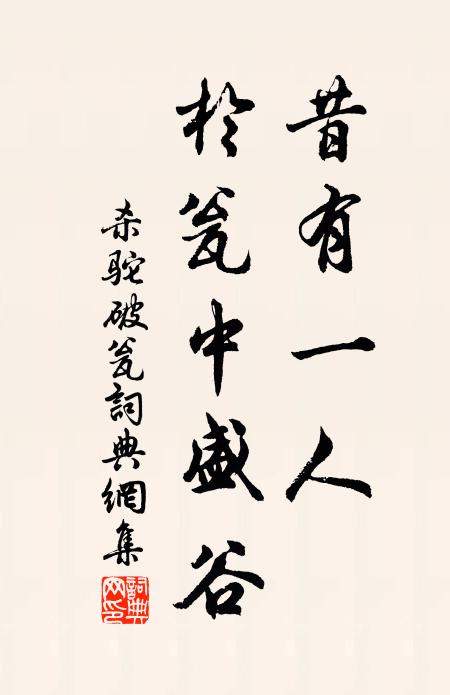 昔有一人
於瓮中盛谷
杀驼破瓮詞典網集
詞典网印